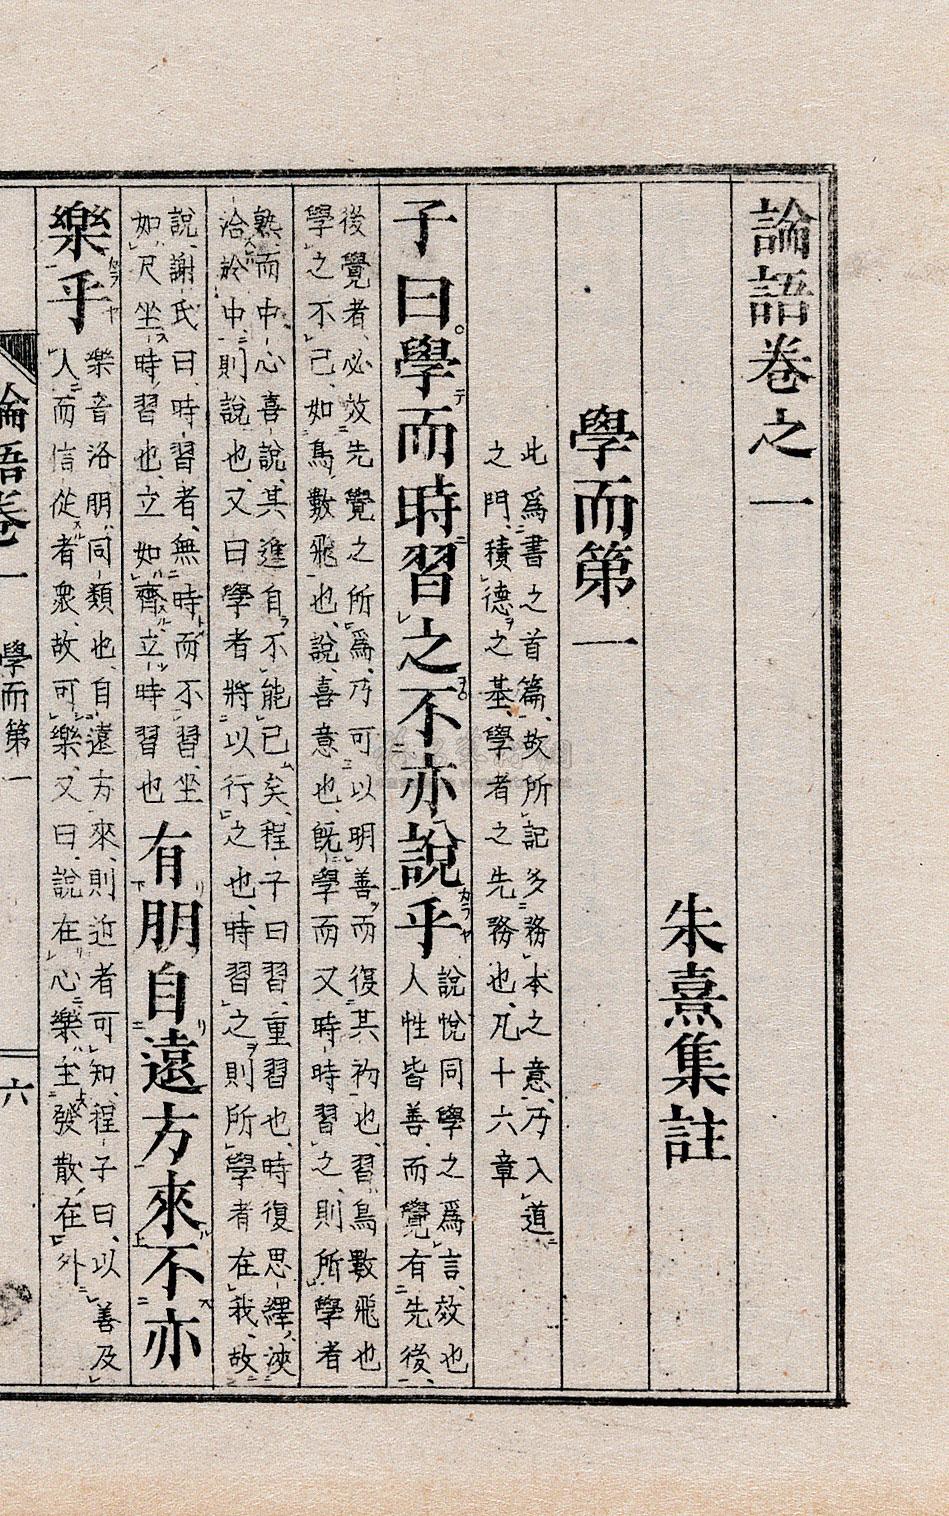 論語卷之一
朱熹集註
學而第一
此爲書之首篇、故所記多務本之意、乃入道
之門、積德之基、學者之先務也、凡十六章
子曰。學而時習之不亦說乎
說悅同學之爲言、效也
人性皆善、而覺有先後、
後覺者、必效先覺之所爲、乃可以明善而復其初也、習、鳥數飛也
學之不已、如鳥數飛也、說、喜意也、旣學而又時時習之、則所學者
熟、而中心喜說、其進自不能已矣、程子曰習、重習也、時復思繹、浹
洽於中、則說也、又曰學者將以行之也、時習之則所學者在我、故
說、謝氏曰、時習者、無時而不習、坐
如尺坐時習也、立如齊立時習也
有朋自遠方來不亦
樂乎
樂音洛、朋、同類也、自遠方來、則近者可知、程子曰、以善及
人、而信從者衆、故可樂、又曰、說在心、樂主發散在外
論語卷一 學而第一 六